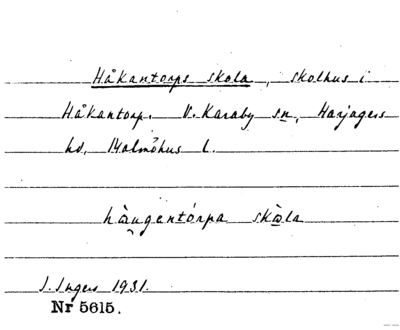 Håkantorps skola, skolhus i
Håkantorp. V. Karaby sn, Harjagers
hd, Malmöhus l.
hàngentórpa skòla
I. Ingers 1931.
Nr 5615.